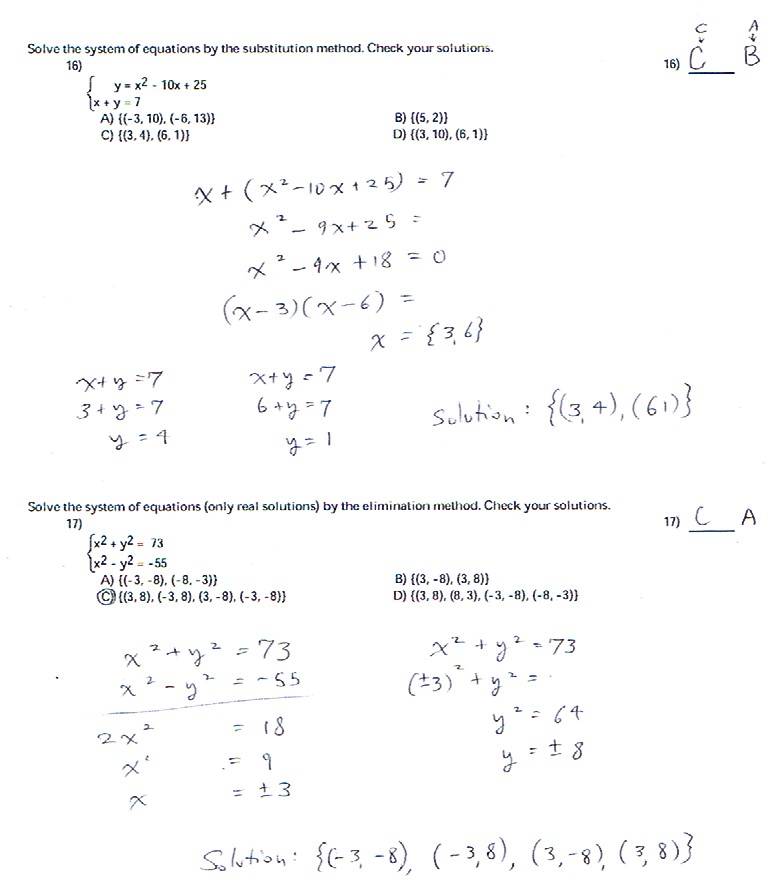 C A
Solve the system of equations by the substitution method. Check your solutions.
16) 16) C B
y = x2 - 10x + 25
x + y = 7
A) {(-3, 10), (-6, 13)} B) {(5, 2)}
C) {(3, 4), (6, 1)} D) {(3, 10), (6, 1)}
x + (x² - 10x + 25) = 7
x² - 9x + 25 =
x² - 9x + 18 = 0
(x - 3)(x - 6) =
x = {3, 6}
x + y = 7 x + y = 7
3 + y = 7 6 + y = 7
y = 4 y = 1
Solution: {(3, 4), (6 1)}
Solve the system of equations (only real solutions) by the elimination method. Check your solutions.
17) 17) C A
x2 + y2 = 73
x2 - y2 = -55
A) {(-3, -8), (-8, -3)} B) {(3, -8), (3, 8)}
C) {(3, 8), (-3, 8), (3, -8), (-3, -8)} D) {(3, 8), (8, 3), (-3, -8), (-8, -3)}
x² + y² = 73 x² + y² = 73
x² - y² = -55 (±3)² + y² =
2x² = 18 y² = 64
x² = 9 y = ± 8
x = ±3
Solution: {(-3, -8), (-3, 8), (3, -8), (3, 8)}